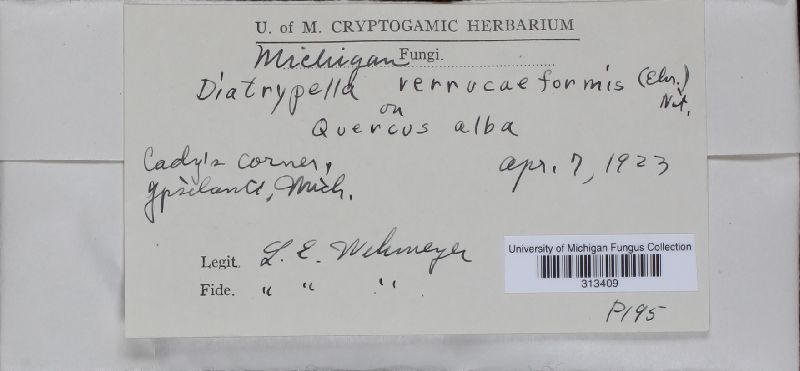 U. of M. CRYPTOGAMIC HERBARIUM
Michigan Fungi.
Diatrypella verrucaeformis (Ehr.) Nit.
on
Quercus alba
Cady's corner, apr. 7, 1923
Ypsilanti, Mich.
Legit. L. E. Wehmeyer
Fide. " " "
University of Michigan Fungus Collection
313409
P195